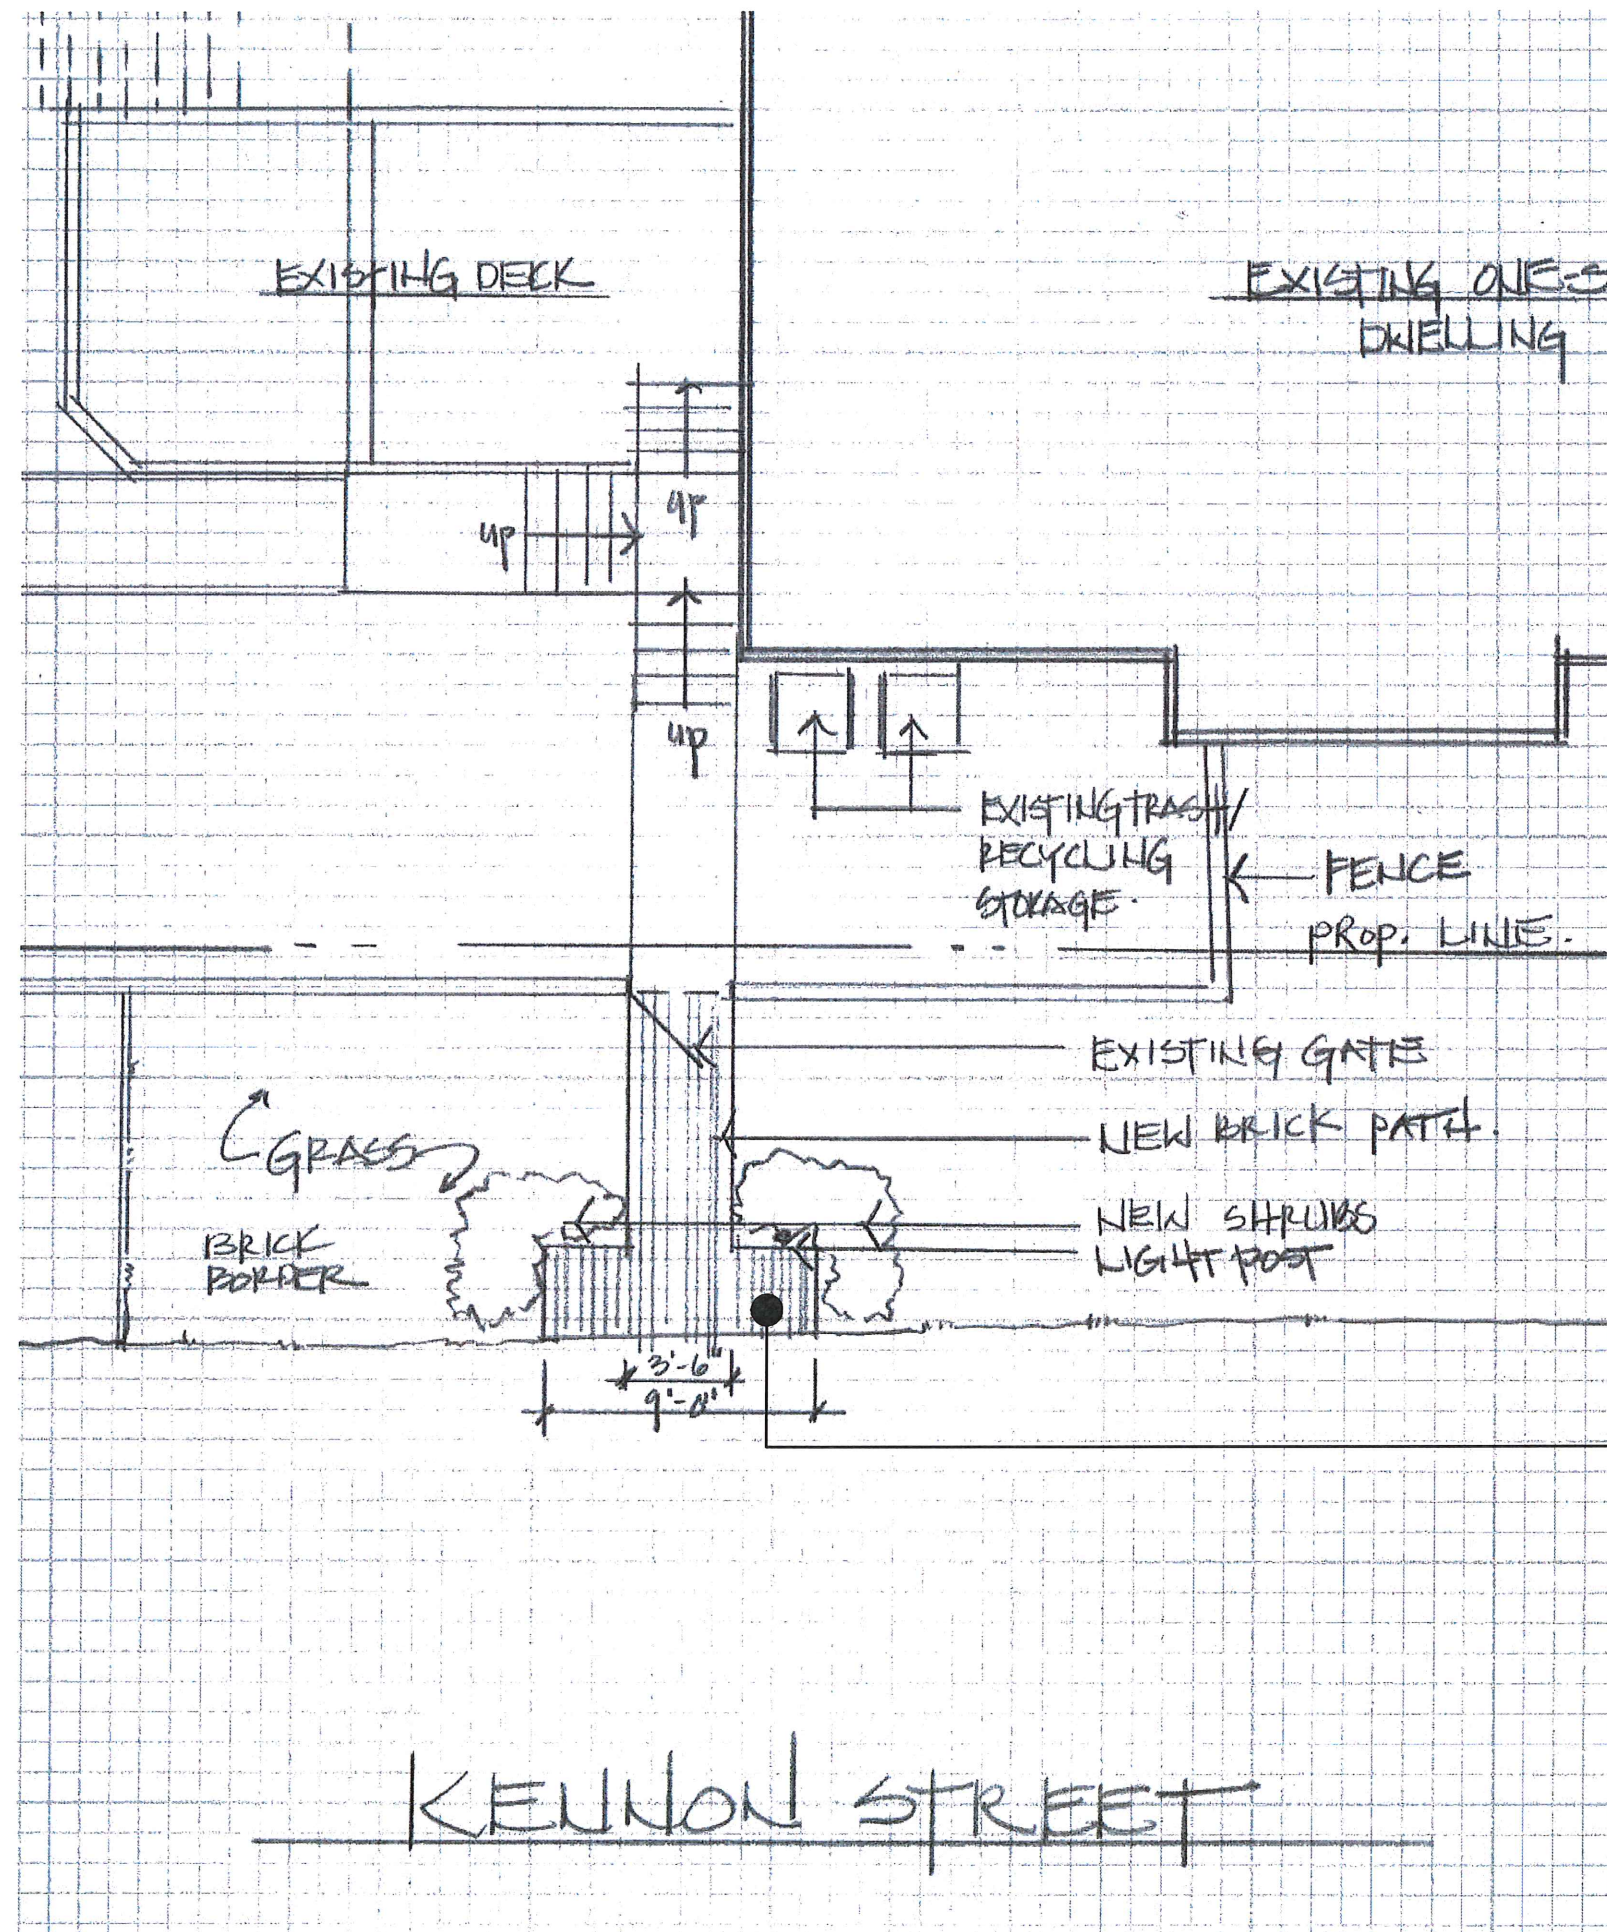 EXISTING DECK
EXISTING ONE-S
DWELLING
UP
UP
UP
EXISTING TRASH/
RECYCLING
STORAGE.
FENCE
PROP. LINE.
EXISTING GATE
NEW BRICK PATH.
GRASS
NEW SHRUBS
LIGHT POST
BRICK
BORDER
3'-6"
9'-0"
KENNON STREET